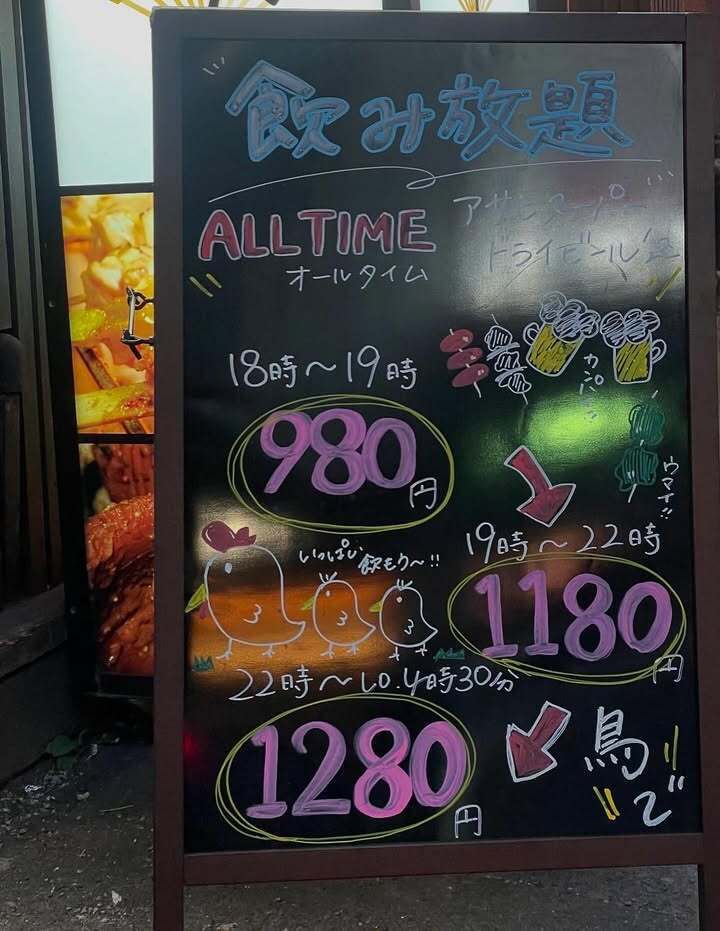 飲み放題
ALLTIME
オールタイム
アサヒスーパー
ドライビール
18時～19時
980円
カンパーイ
ウマイ!!
19時～22時
1180円
いっぱい
飲もう～!!
22時～L.O.4時30分
1280円
鳥